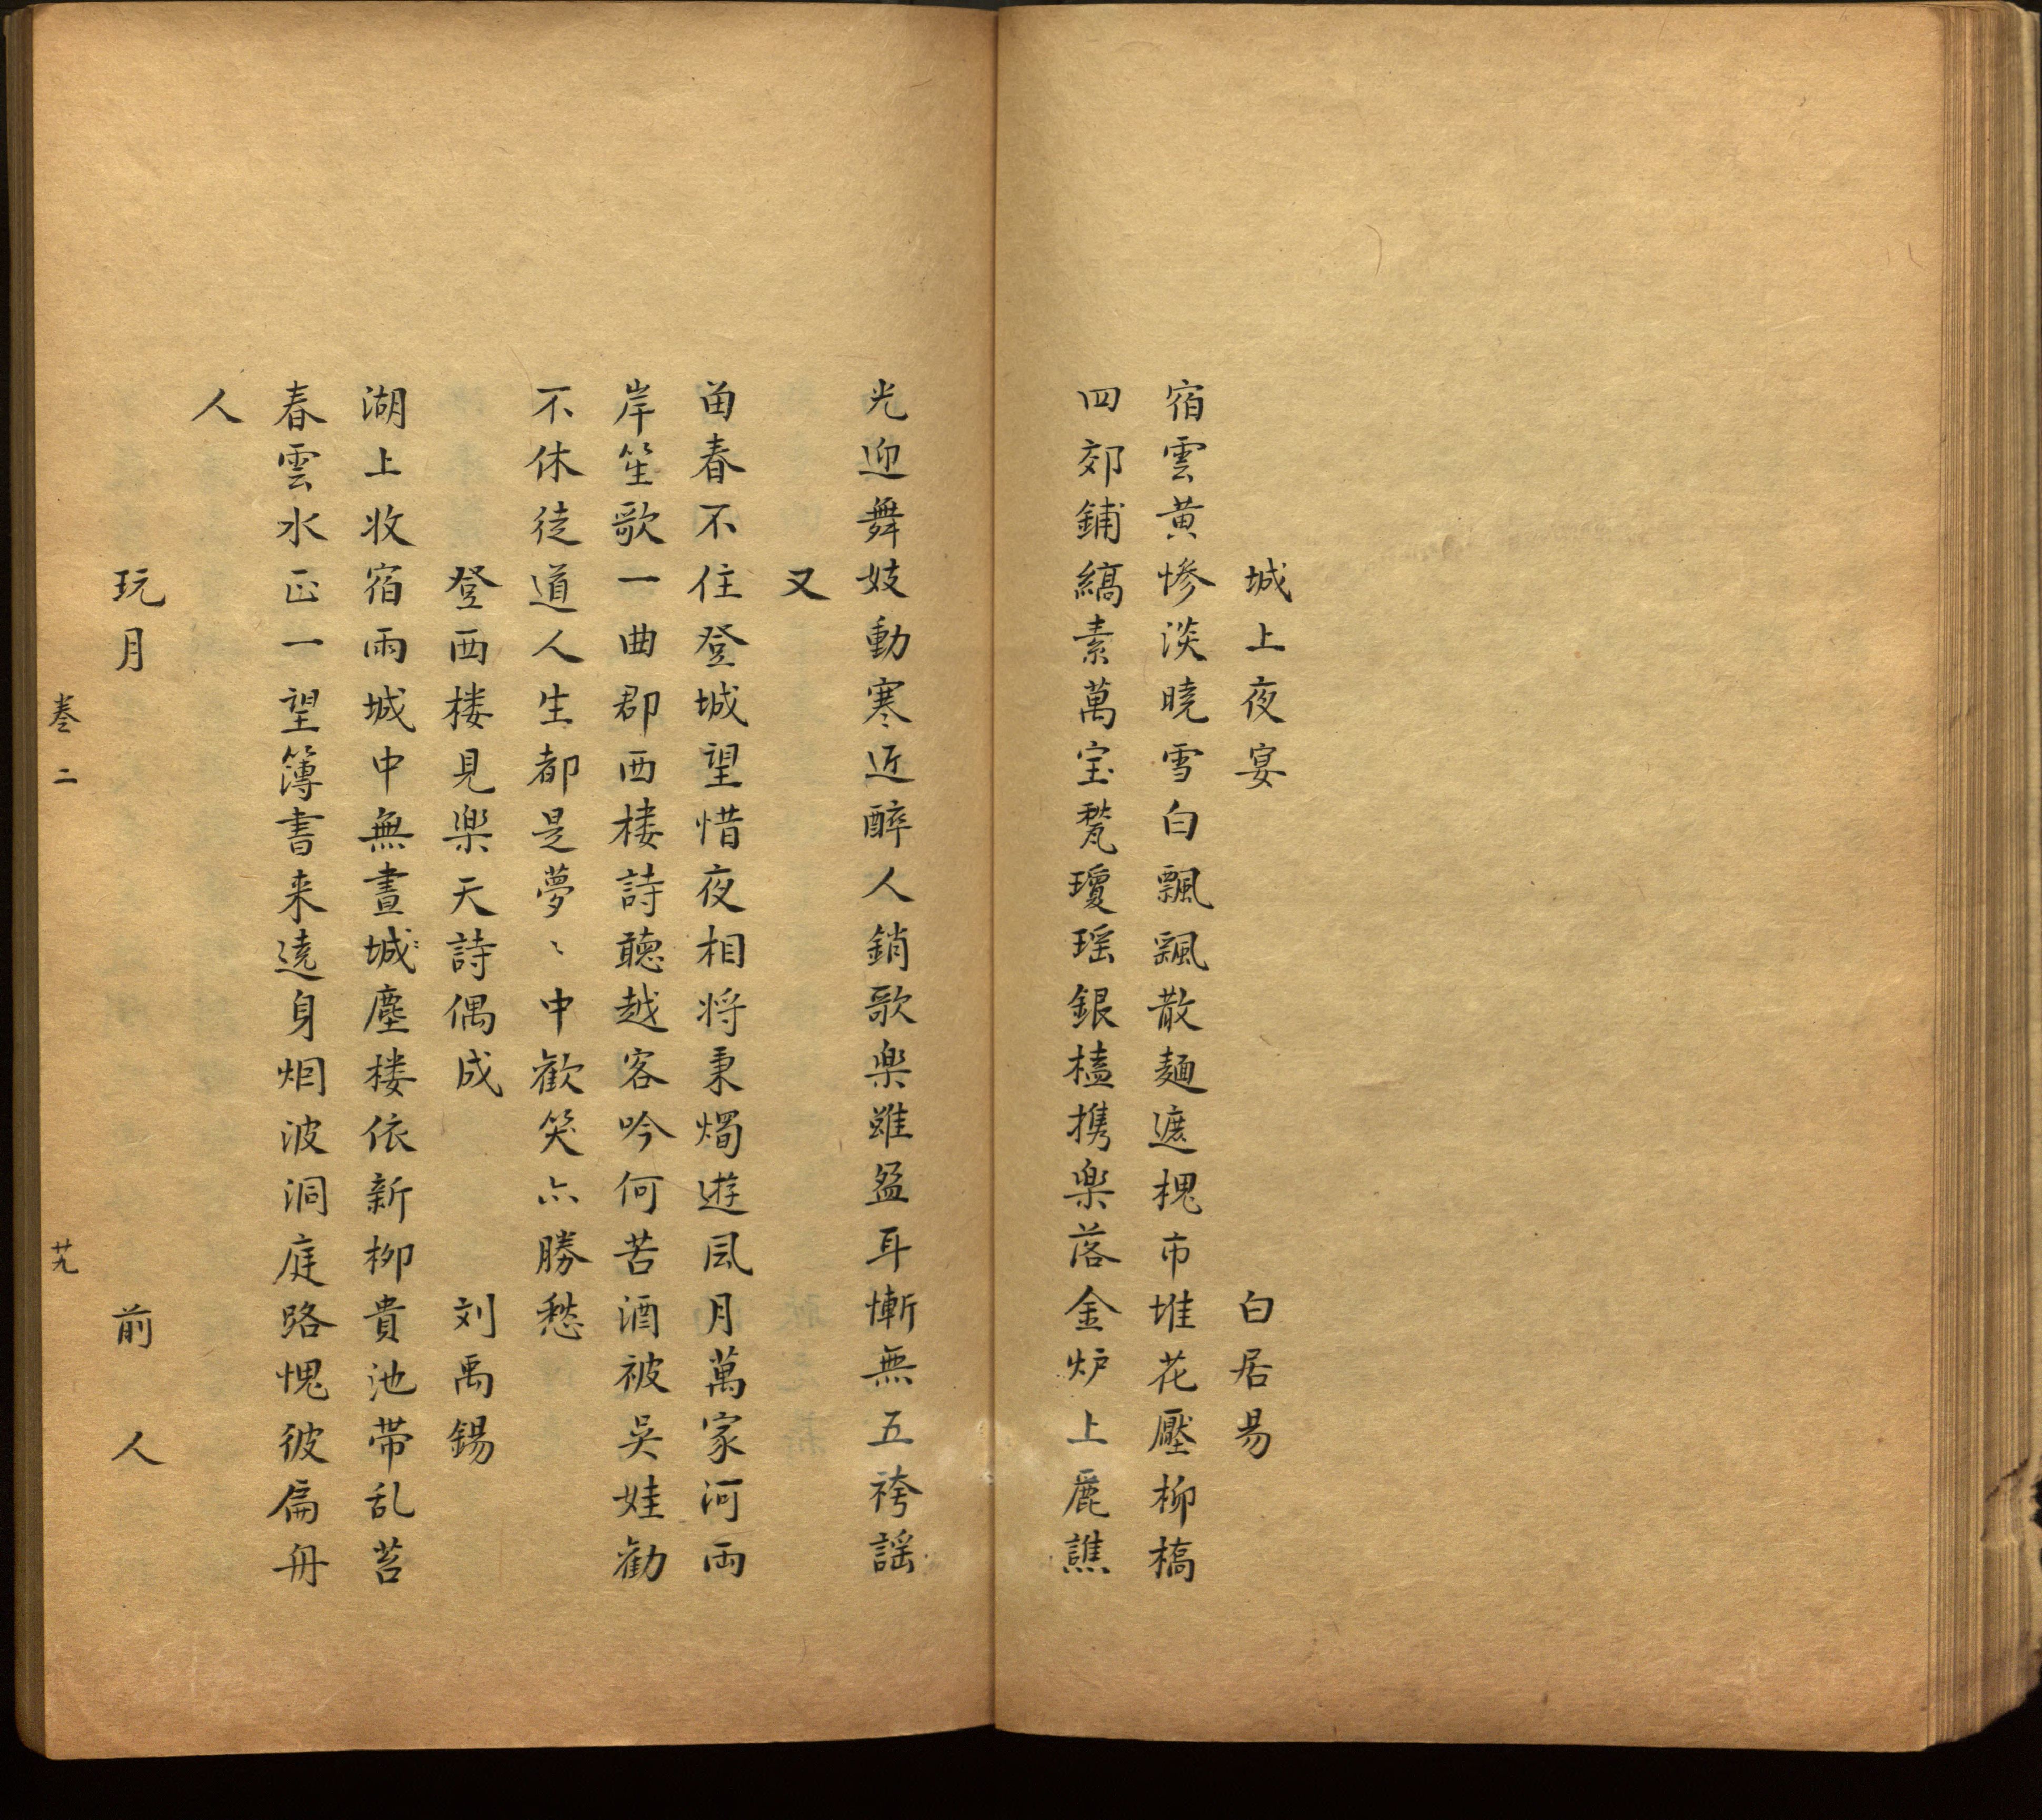 城上夜宴 白居易
宿雲黄惨淡曉雪白飄颻散麺遮槐市堆花壓柳橋
四郊鋪縞素萬宝甃瓊瑶銀榼携楽落金炉上麗譙
光迎舞妓動寒近醉人銷歌楽雖盈耳慚無五袴謡
又
畄春不住登城望惜夜相将秉燭遊風月萬家河両
岸笙歌一曲郡西楼詩聴越客吟何苦酒被吳娃勧
不休徒道人生都是夢〻中歓笑亦勝愁
登西楼見楽天詩偶成 刘禹錫
湖上收宿雨城中無晝城塵楼依新柳貴池帯乱苔
春雲水正一望簿書来遶身烟波洞庭路愧彼扁舟
人
玩月 前人
巻二 廿九